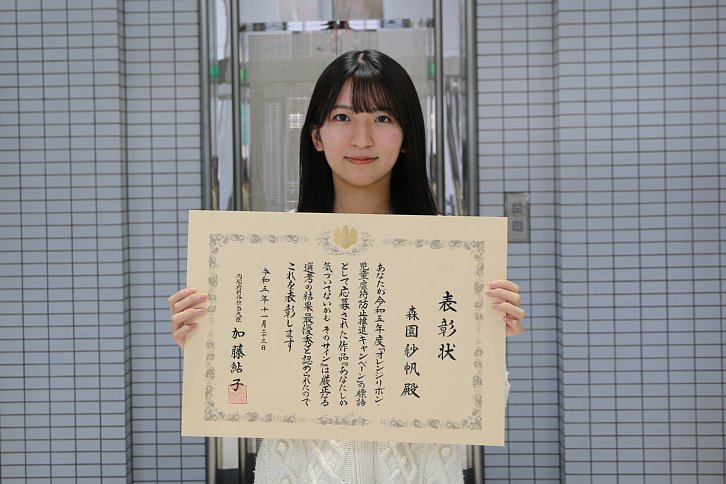 表彰状
森園紗帆 殿
あなたが令和五年度「オレンジリボン・
児童虐待防止推進キャンペーン」の標語
として応募された作品『あなたしか
気づいてないかも そのサイン』は厳正なる
選考の結果最優秀と認められたので
これを表彰します
令和五年十一月二十三日
加藤鮎子